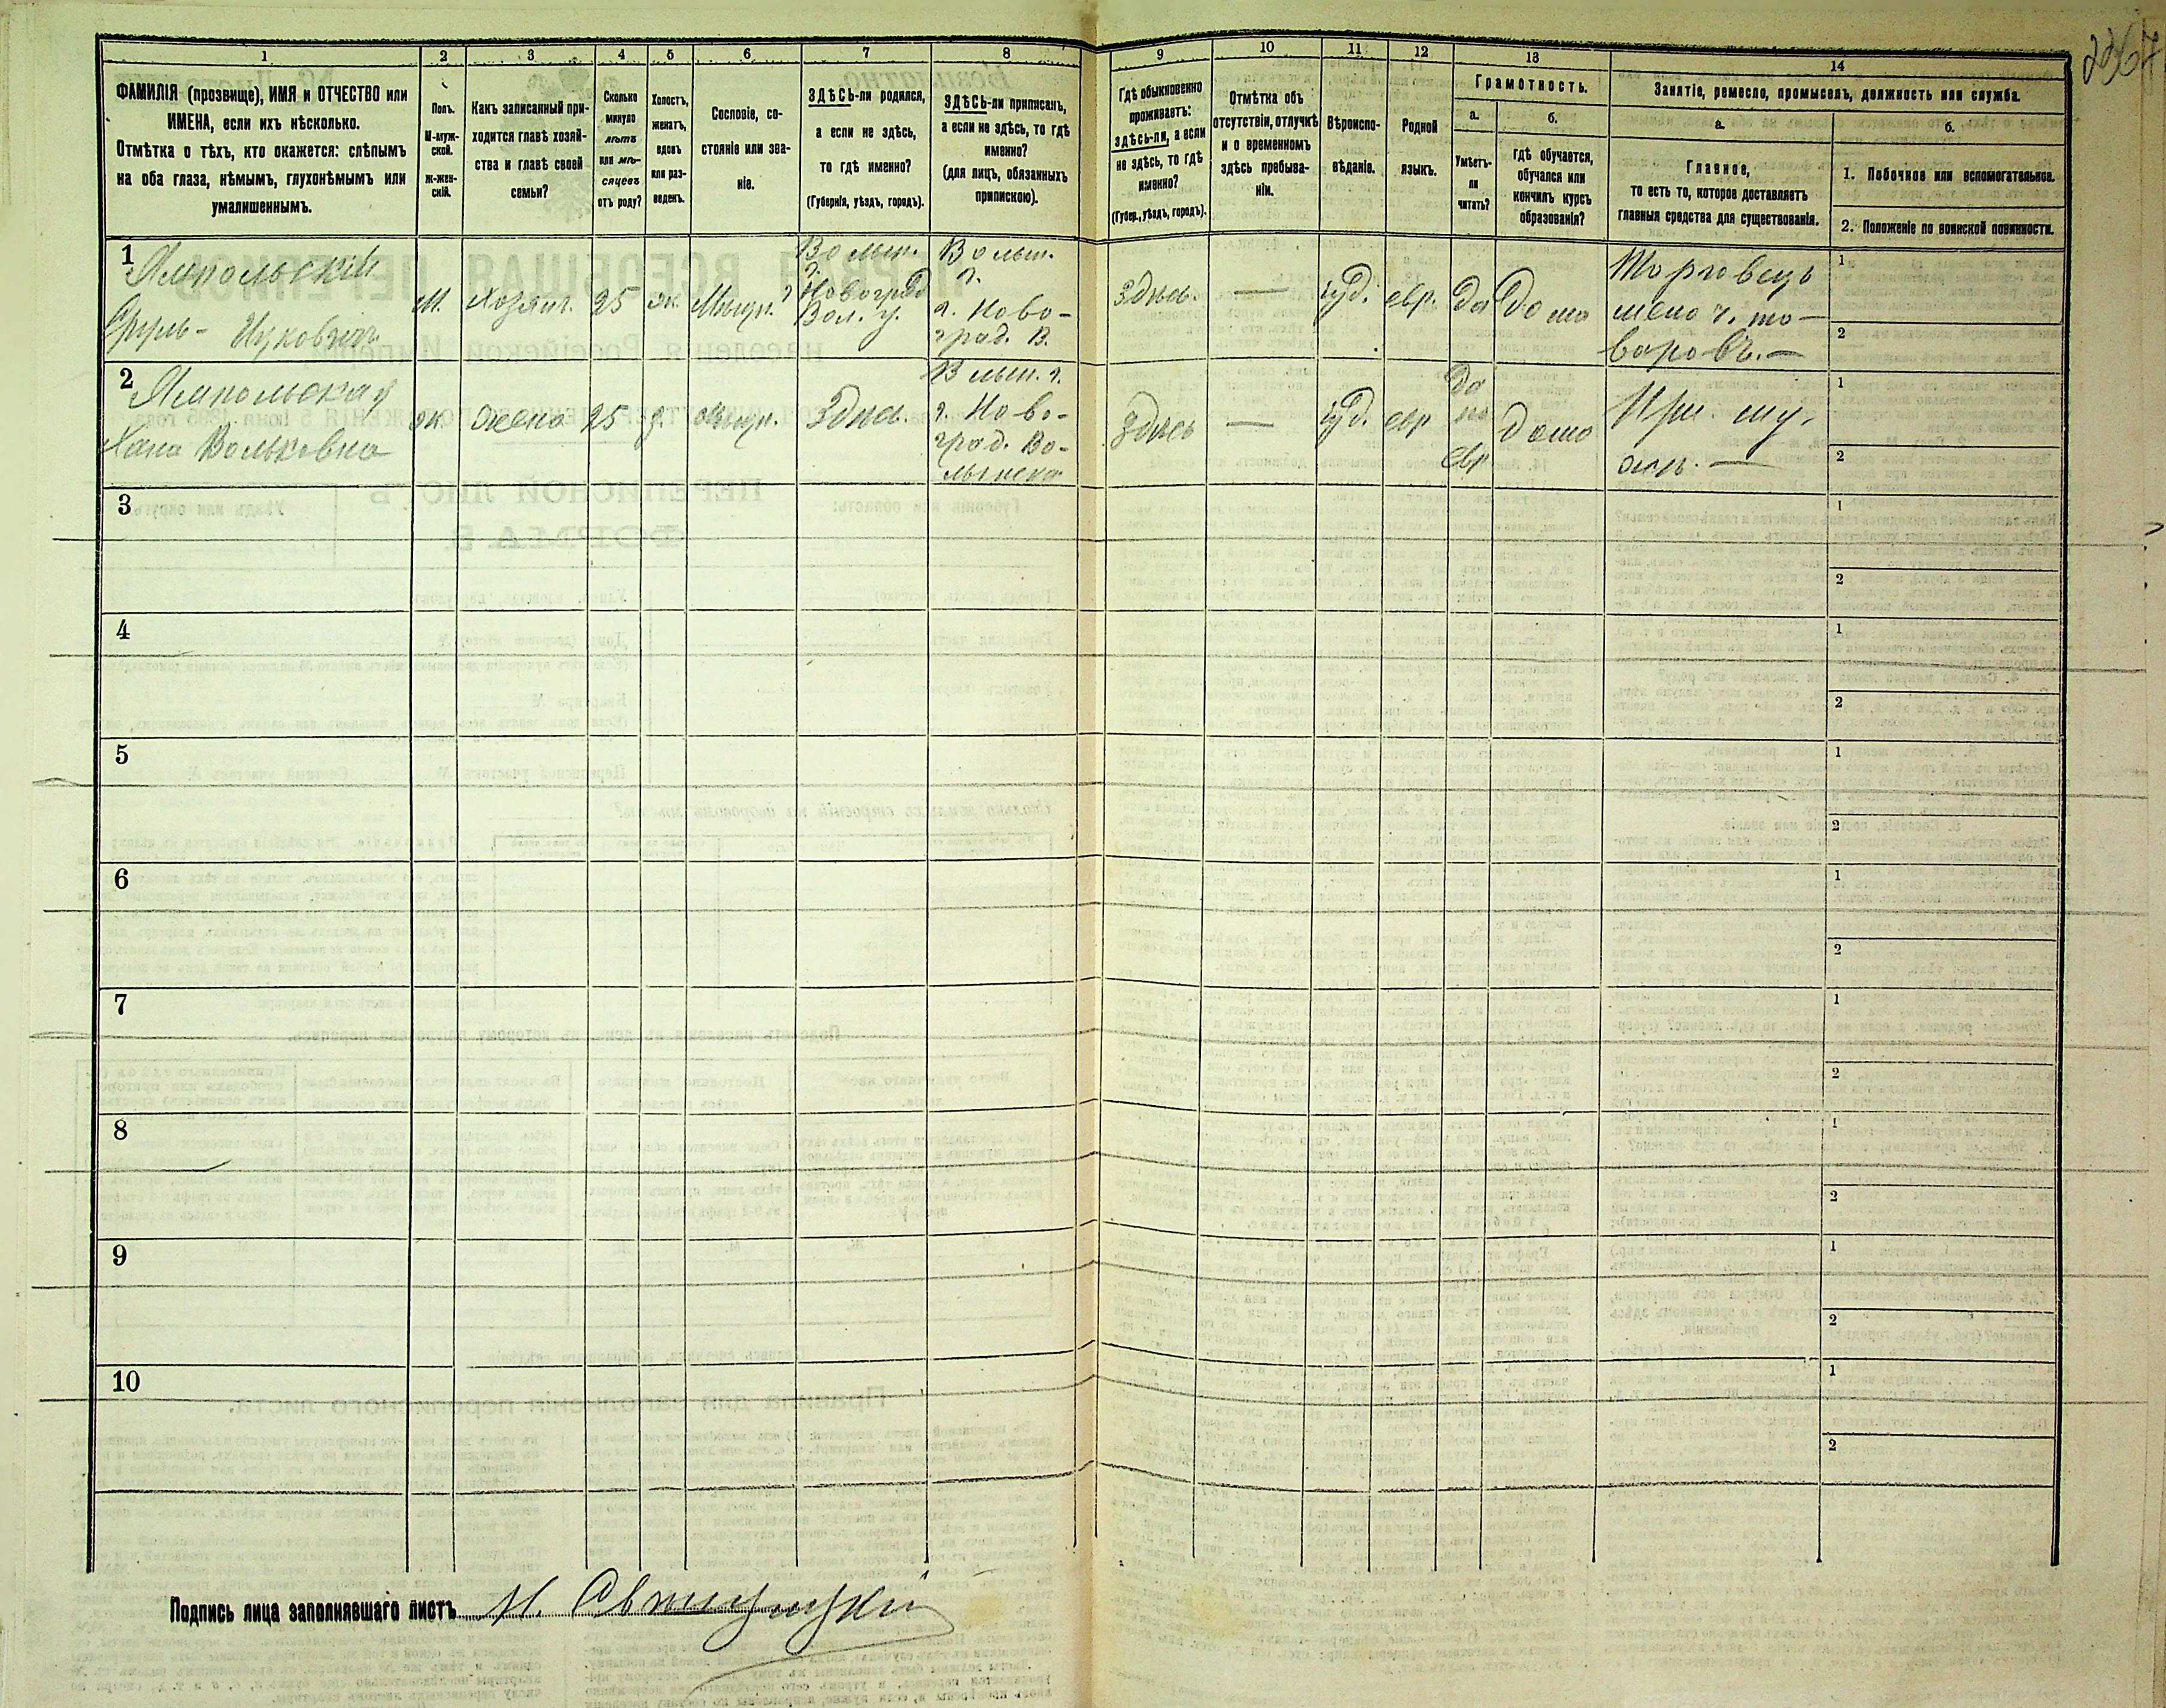 1 2 3 4 5 6 7 8 9 10 11 12 13 14
ФАМИЛІЯ (прозвище), ИМЯ и ОТЧЕСТВО или
ИМЕНА, если ихъ нѣсколько.
Отмѣтка о тѣхъ, кто окажется: слѣпымъ
на оба глаза, нѣмымъ, глухонѣмымъ или
умалишеннымъ.
Полъ.
М-муж-
ской.
ж-жен-
скій.
Какъ записанный при-
ходится главѣ хозяй-
ства и главѣ своей
семьи?
Сколько
минуло
лѣтъ
или мѣ-
сяцевъ
отъ роду?
Холостъ,
женатъ,
вдовъ
или раз-
веденъ.
Сословіе, со-
стояніе или зва-
ніе.
ЗДѢСЬ-ли родился,
а если не здѣсь,
то гдѣ именно?
(Губернія, уѣздъ, городъ).
ЗДѢСЬ-ли приписанъ,
а если не здѣсь, то гдѣ
именно?
(для лицъ, обязанныхъ
припискою).
Гдѣ обыкновенно
проживаетъ:
здѣсь-ли, а если
не здѣсь, то гдѣ
именно?
(Губер., уѣздъ, городъ).
Отмѣтка объ
отсутствіи, отлучкѣ
и о временномъ
здѣсь пребыва-
ніи.
Вѣроиспо-
вѣданіе.
Родной
языкъ.
Грамотность.
а.
Умѣетъ-
ли
читать?
б.
гдѣ обучается,
обучался или
кончилъ курсъ
образованія?
Занятіе, ремесло, промыселъ, должность или служба.
а.
Главное,
то есть то, которое доставляетъ
главныя средства для существованія.
б.
1. Побочное или вспомогательное.
2. Положеніе по воинской повинности.
1
Ямпольскій
Сруль- Ицковичъ
М.
Хозяин.
25
ж.
Мѣщ.
Волын.
г.
Новоград
Вол. у.
Волын.
г.
г. Ново-
град. В.
Здѣсь.
—
іуд.
евр.
да
дома
Торговецъ
мелоч. то-
варовъ. —
1
2
2
Ямпольская
Хана Вольковна
ж.
жена
25
з.
мѣщ.
Здѣсь.
Волын. г.
г. Ново-
град. Во-
лынска
Здѣсь
—
іуд.
евр
да
по
евр
дома
При му-
жѣ. —
1
2
3
1
2
4
1
2
5
1
2
6
1
2
7
1
2
8
1
2
9
1
2
10
1
2
Подпись лица заполнявшаго листъ